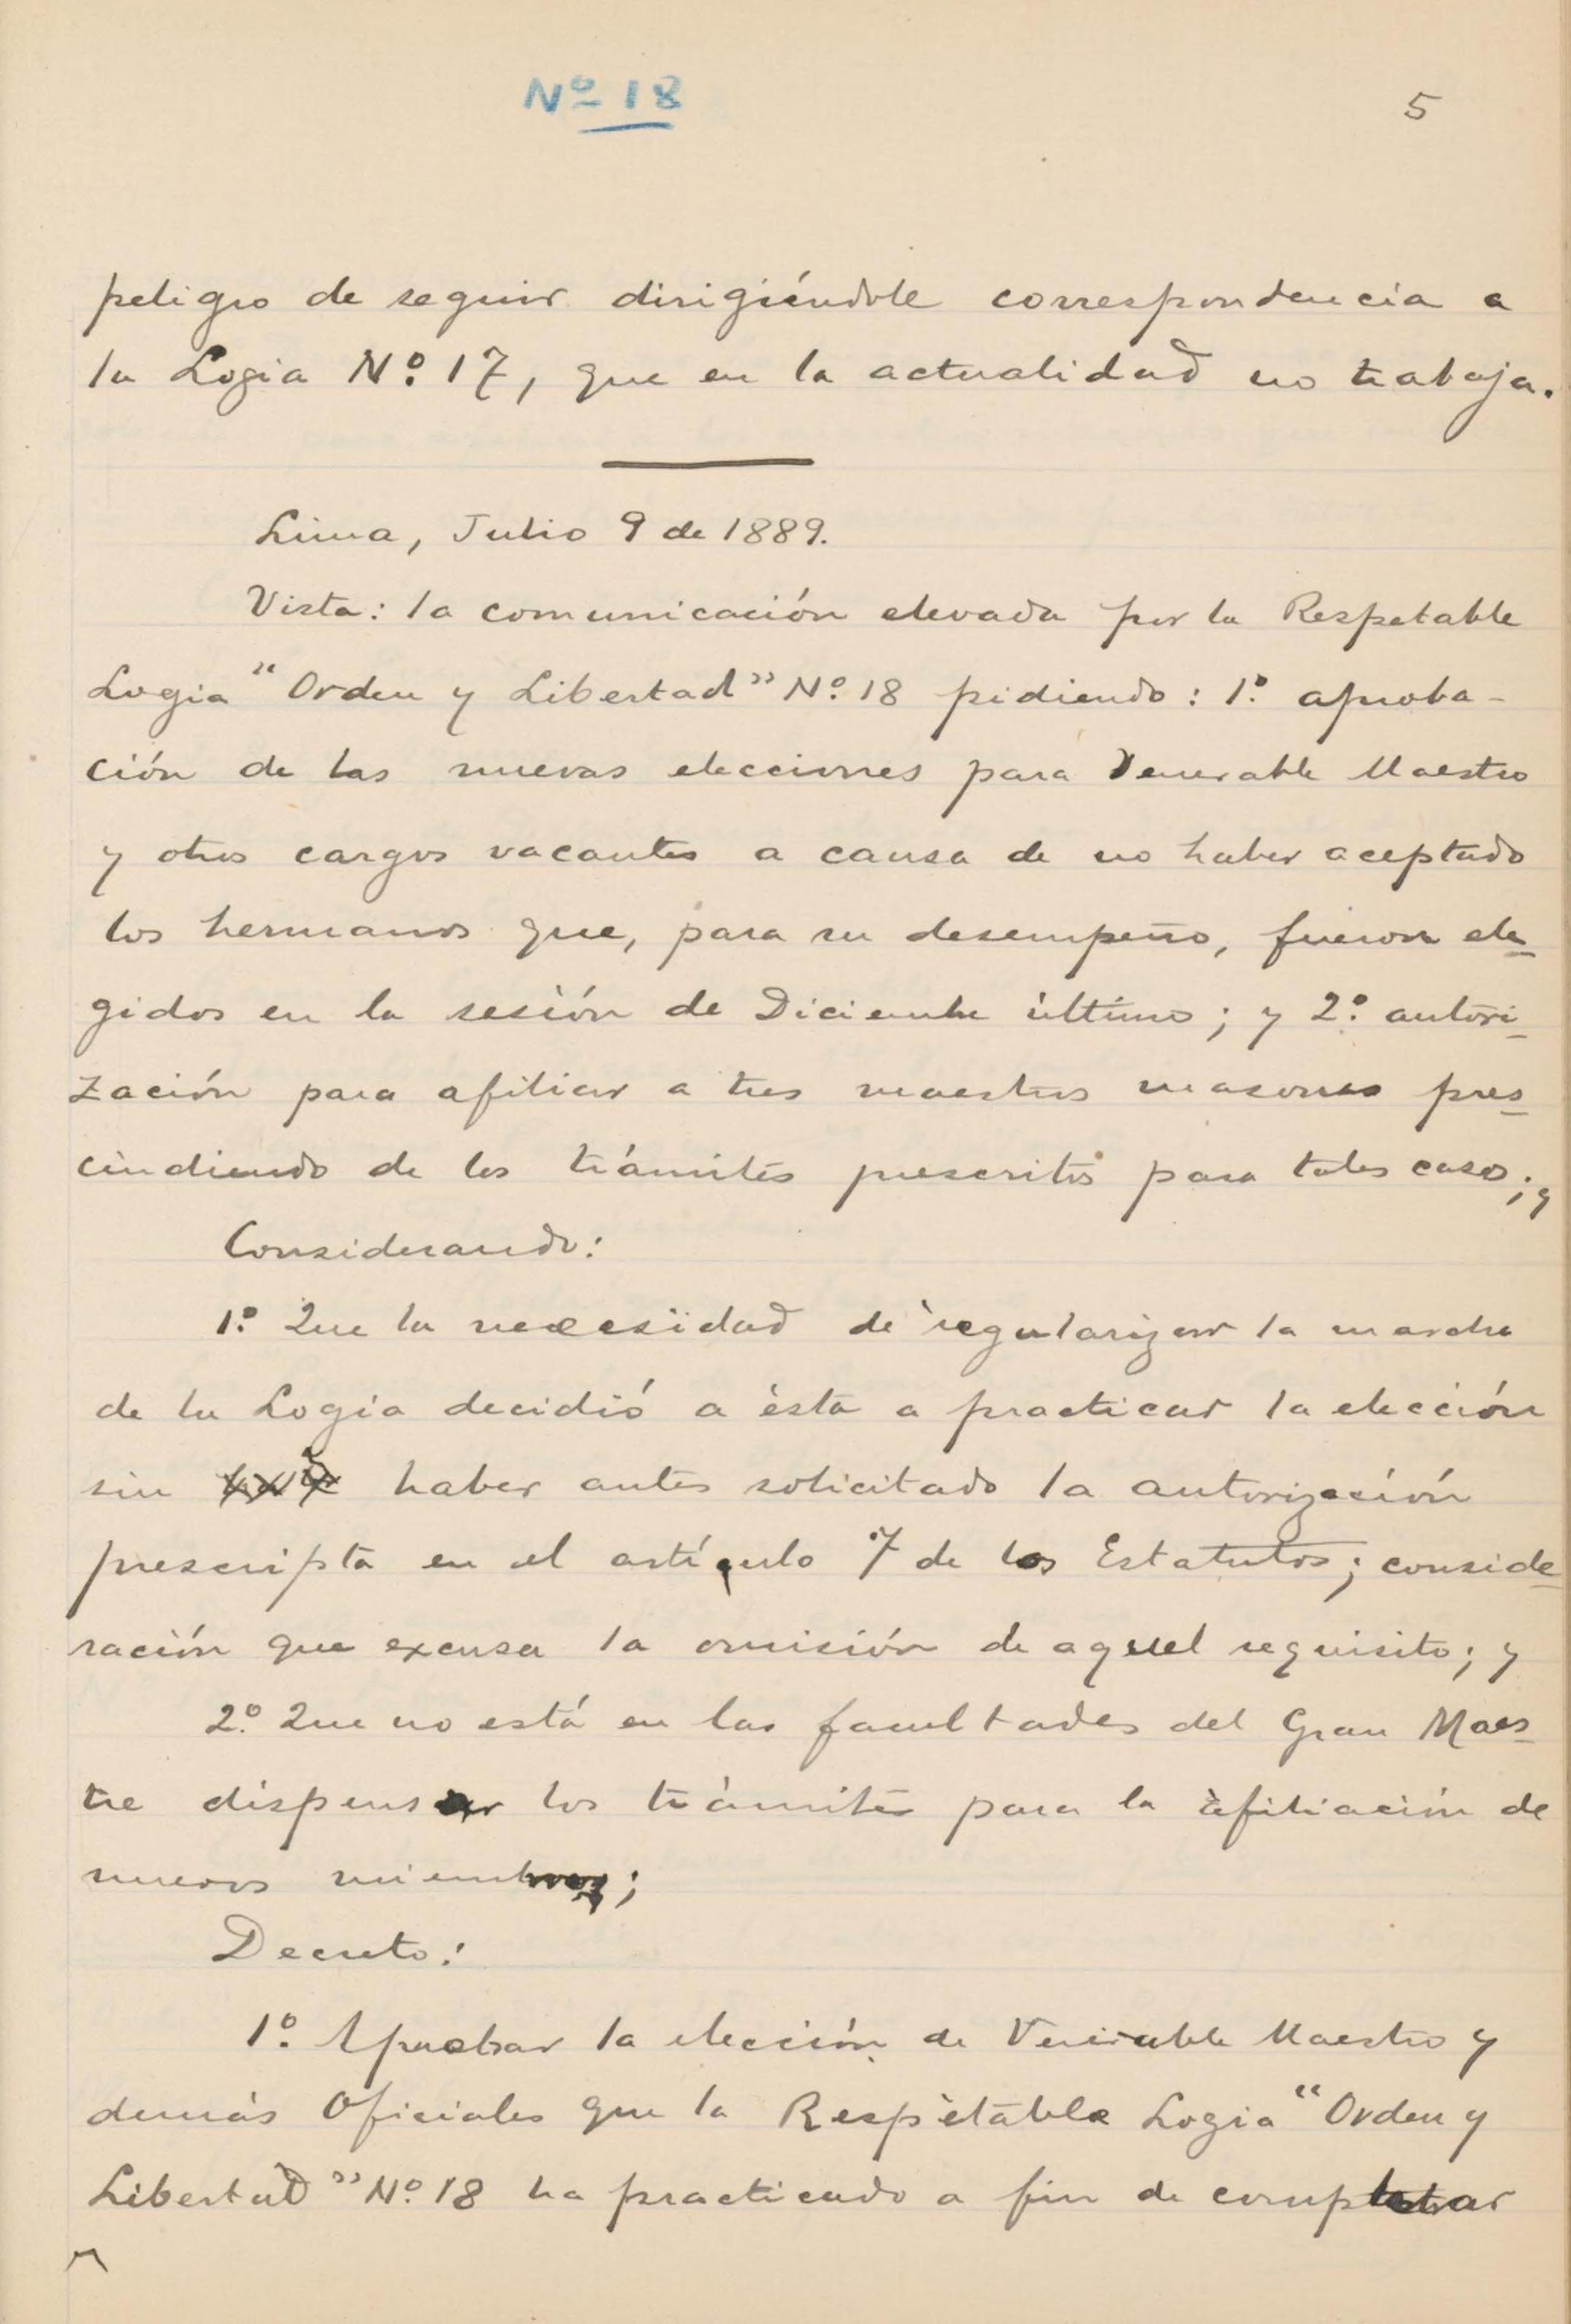 Nº 18
5
peligro de seguir dirigiéndole correspondencia a
la Logia Nº. 17, que en la actualidad no trabaja.
Lima, Julio 9 de 1889.
Vista: la comunicación elevada por la Respetable
Logia "Orden y Libertad" Nº. 18 pidiendo: 1º. aproba-
ción de las nuevas elecciones para Venerable Maestro
y otros cargos vacantes a causa de no haber aceptado
los hermanos que, para su desempeño, fueron ele-
gidos en la sesión de Diciembre último; y 2º. autori-
zación para afiliar a tres maestros masones pres-
cindiendo de los trámites prescritos para tales casos; y
Considerando:
1º. Que la necesidad de regularizar la marcha
de la Logia decidió a ésta a practicar la elección
sin haber antes solicitado la autorización
prescripta en el artículo 7 de los Estatutos; conside-
ración que excusa la omisión de aquel requisito; y
2º. Que no está en las facultades del Gran Maes-
tre dispensar los trámites para la afiliación de
nuevos miembros;
Decreto:
1º. Aprobar la elección de Venerable Maestro y
demás Oficiales que la Respetable Logia "Orden y
Libertad" Nº. 18 ha practicado a fin de completar